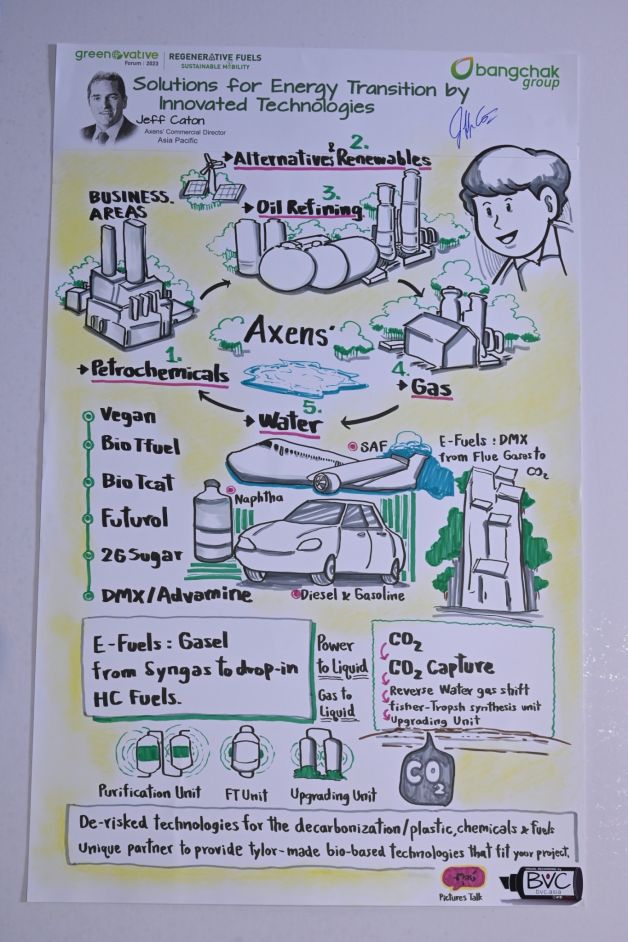 greenovative
Forum | 2023
REGENERATIVE FUELS
SUSTAINABLE MOBILITY
bangchak
group
Solutions for Energy Transition by
Innovated Technologies
Jeff Caton
Axens' Commercial Director
Asia Pacific
2.
Alternatives & Renewables
BUSINESS
AREAS
3.
Oil Refining
Axens'
1.
Petrochemicals
4.
Gas
5.
Water
Vegan
Bio Tfuel
Bio Tcat
Futurol
2G Sugar
DMX/Advamine
SAF
Naphtha
Diesel & Gasoline
E-Fuels : DMX
from Flue Gases to
CO2
E-Fuels : Gasel
from Syngas to drop-in
HC Fuels.
Power
to Liquid
Gas to
Liquid
CO2
CO2 Capture
Reverse Water gas shift
fisher-Tropsh synthesis unit
Upgrading Unit
Purification Unit
FT Unit
Upgrading Unit
CO2
De-risked technologies for the decarbonization/plastic, chemicals & fuels
Unique partner to provide tylor-made bio-based technologies that fit your project.
Pictures Talk
BVC
bvc.asia